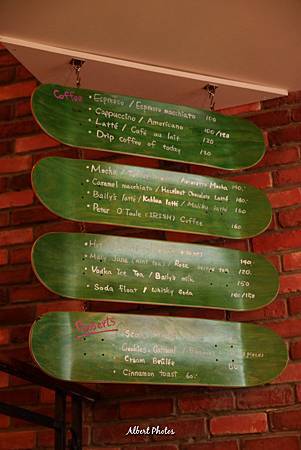 Coffee • Espresso / Espresso macchiato 100
• Cappuccino / Americano 100 / 120
• Latté / Café au lait 120
• Drip coffee of today 120
• Mocha / Macchiato 140.
• Caramel macchiato / Hazelnut Chocolate Latté 160.
• Baily's latté / Kahlua latté / Malibu latté 160
• Peter O'Toole (IRISH) Coffee 160
• Hot 140
• Mary Jane (mint tea) / Rose tea 120
• Vodka Ice Tea / Baily's milk 150
• Soda float / Whisky soda 100 / 150
Desserts
• Cookies - Oatmeal / pieces
• Cream Brulée 60
• Cinnamon toast 60.-
Albert Photos